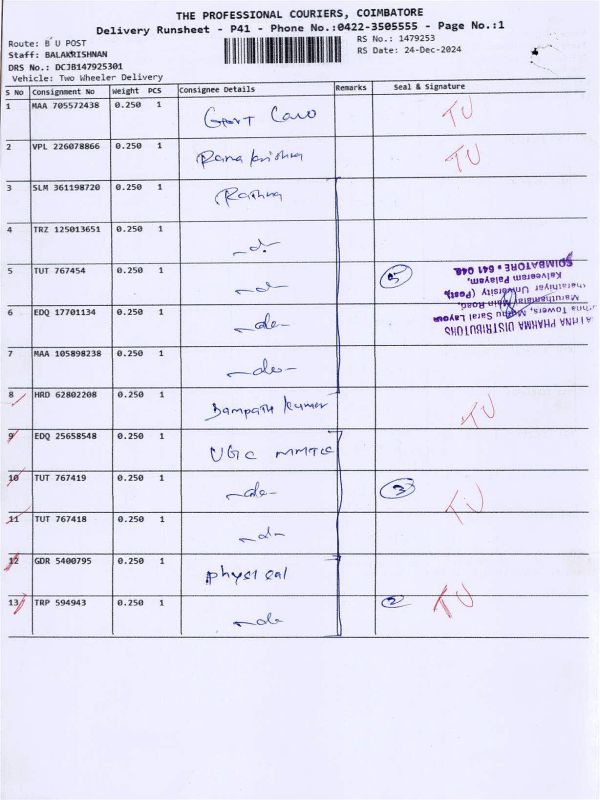 THE PROFESSIONAL COURIERS, COIMBATORE
Delivery Runsheet - P41 - Phone No.:0422-3505555 - Page No.:1
Route: B U POST
RS No.: 1479253
Staff: BALAKRISHNAN
RS Date: 24-Dec-2024
DRS No.: DCJB147925301
Vehicle: Two Wheeler Delivery
S No Consignment No Weight PCS Consignee Details Remarks Seal & Signature
1 MAA 705572438 0.250 1 TU
2 VPL 226078866 0.250 1 Ramakrishna TU
3 SLM 361198720 0.250 1 Rathna
4 TRZ 125013651 0.250 1 -do-
5 TUT 767454 0.250 1 -do- 5
COIMBATORE - 641 046.
Kalveeram Palayam,
Bharathiyar University (Post),
Maruthamalai Main Road,
Towers, Saral Layout
RATHNA PHARMA DISTRIBUTORS
6 EDQ 17701134 0.250 1 -do-
7 MAA 105898238 0.250 1 -do-
8 HRD 62802208 0.250 1 Sampath Kumar TU
9 EDQ 25658548 0.250 1 UGC MMTC
10 TUT 767419 0.250 1 -do- 3 TU
11 TUT 767418 0.250 1 -do-
12 GDR 5400795 0.250 1 physical
13 TRP 594943 0.250 1 -do- 2 TU